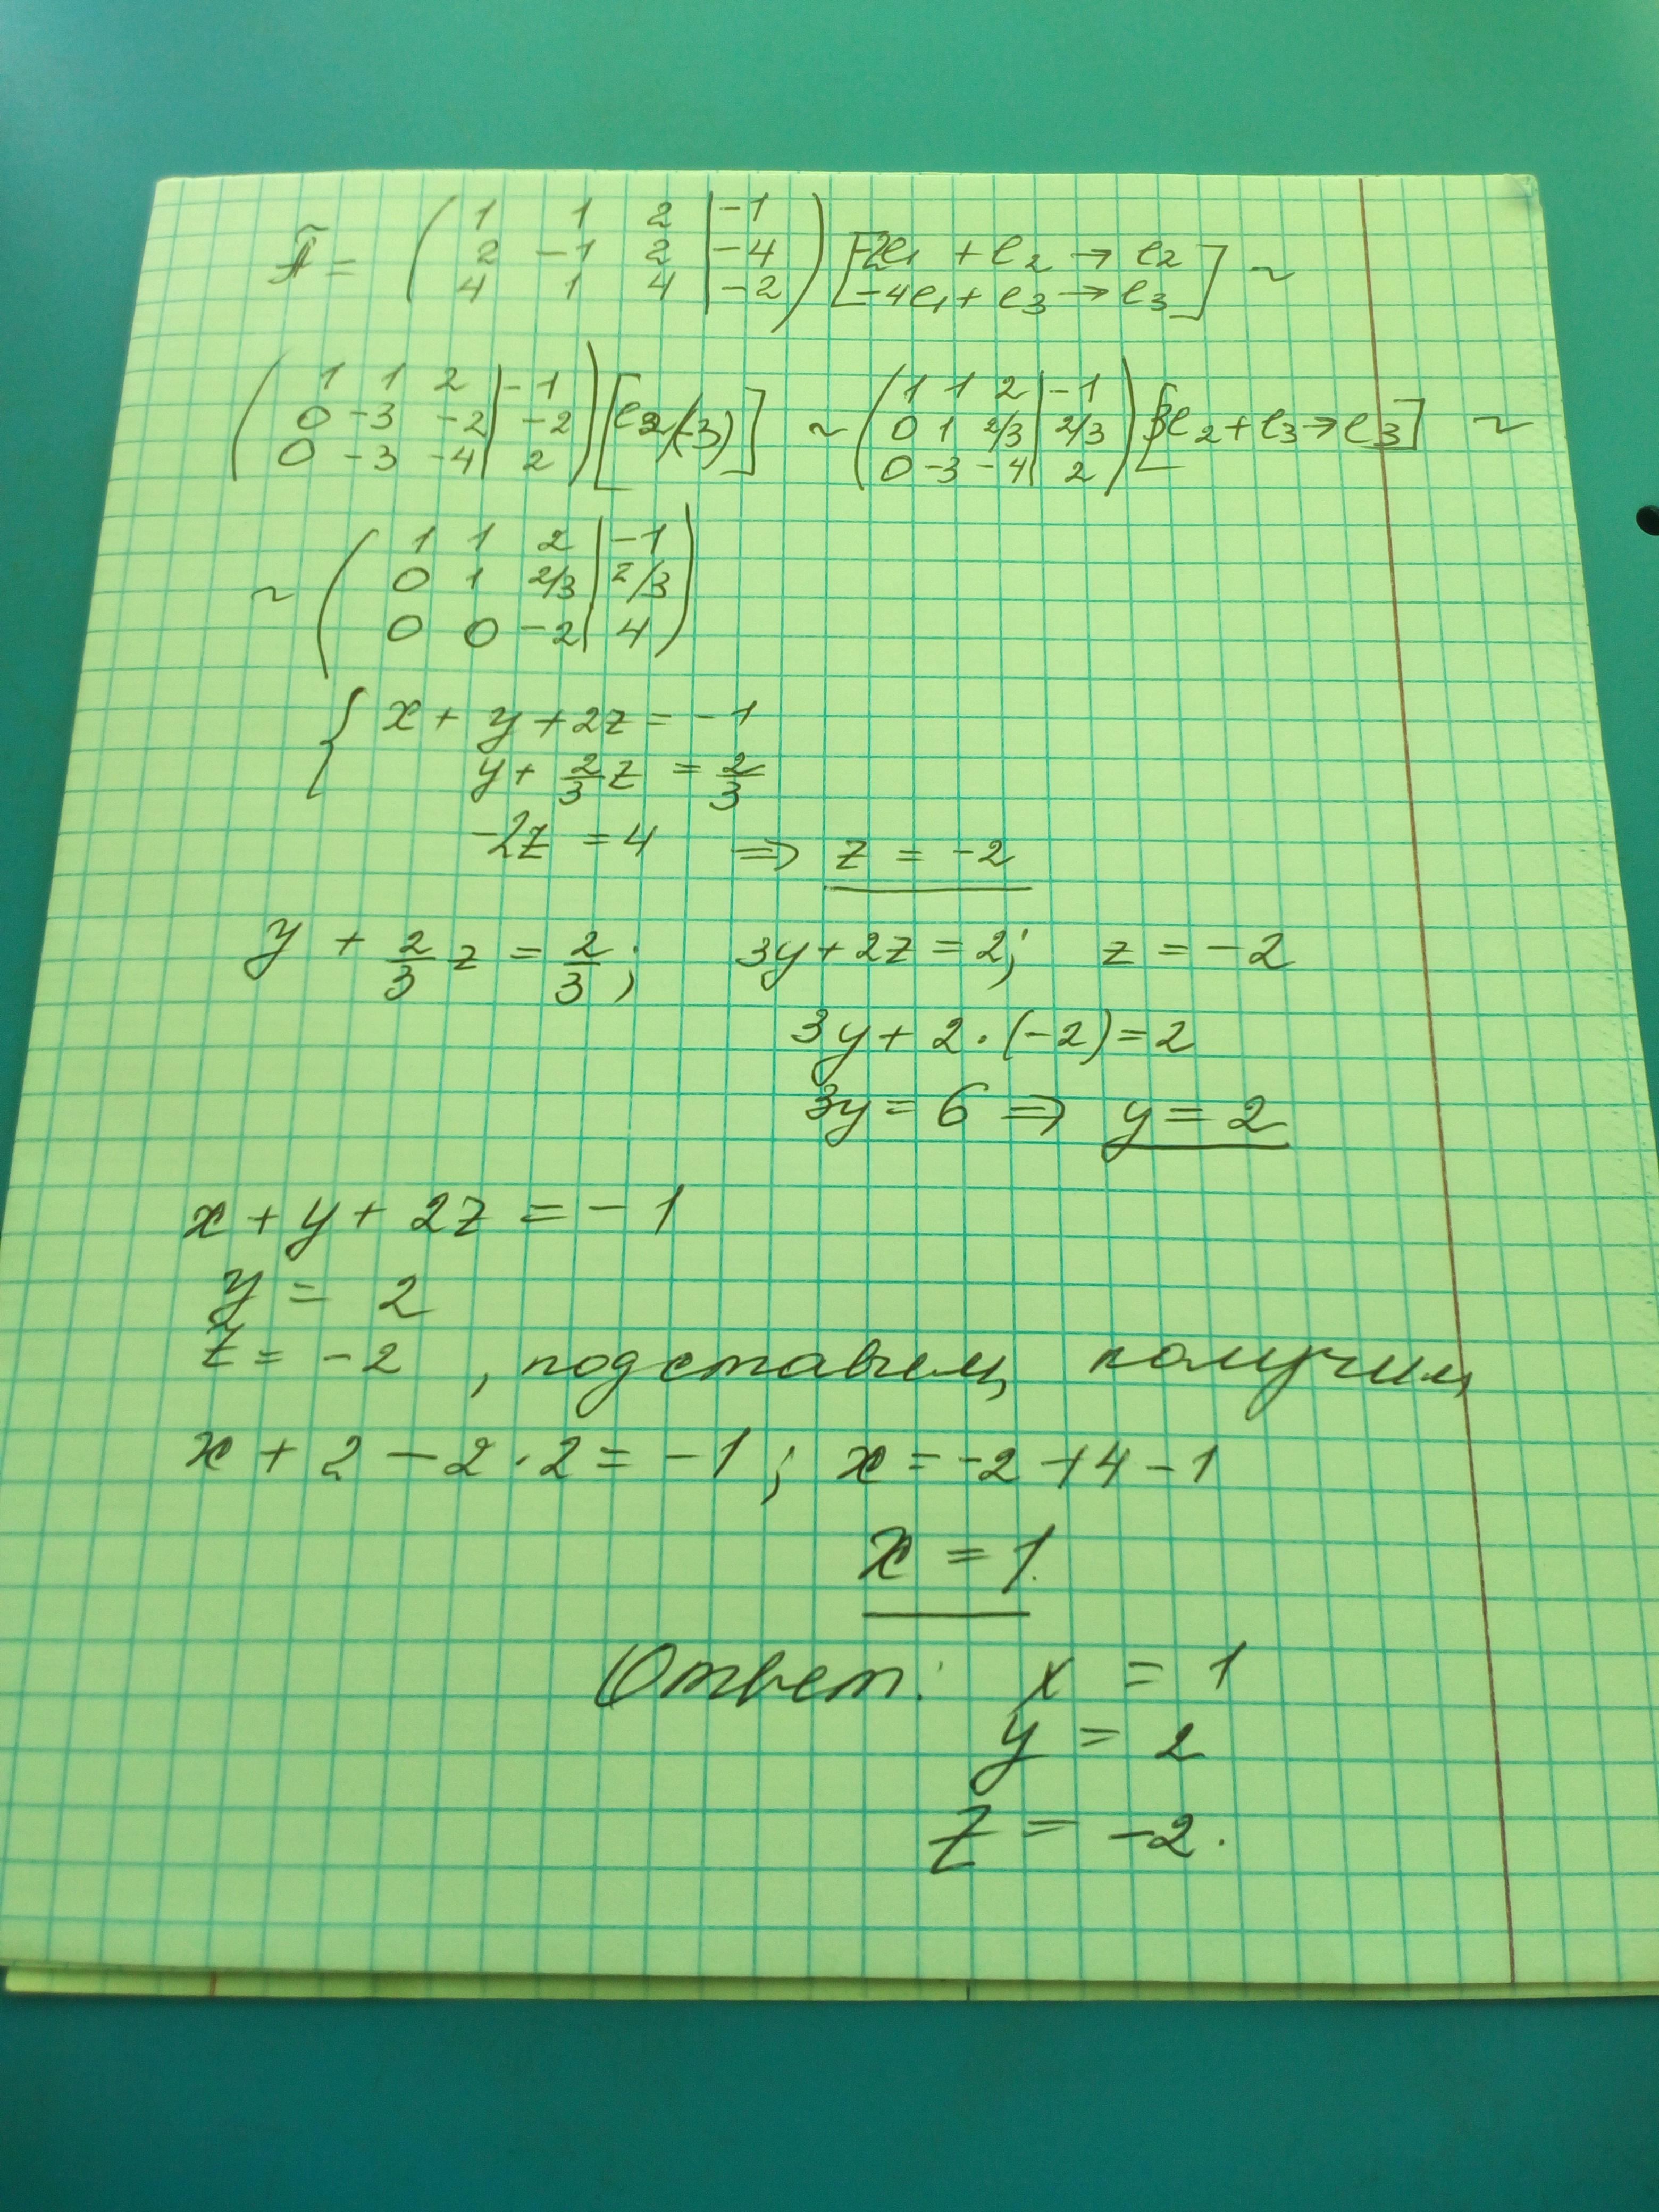 Ã = ( 1 1 2 | -1
2 -1 2 | -4
4 1 4 | -2 ) [ -2e₁ + e₂ → e₂
-4e₁ + e₃ → e₃ ] ~
( 1 1 2 | -1
0 -3 -2 | -2
0 -3 -4 | 2 ) [ e₂/(-3) ] ~ ( 1 1 2 | -1
0 1 2/3 | 2/3
0 -3 -4 | 2 ) [ 3e₂ + e₃ → e₃ ] ~
~ ( 1 1 2 | -1
0 1 2/3 | 2/3
0 0 -2 | 4 )
{ x + y + 2z = -1
y + 2/3 z = 2/3
-2z = 4 => z = -2
y + 2/3 z = 2/3; 3y + 2z = 2; z = -2
3y + 2·(-2) = 2
3y = 6 => y = 2
x + y + 2z = -1
y = 2
z = -2 , подставим, получим
x + 2 - 2·2 = -1; x = -2 + 4 - 1
x = 1.
Ответ: x = 1
y = 2
z = -2.